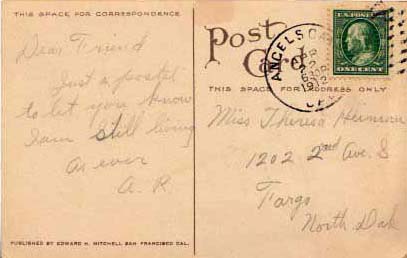 THIS SPACE FOR CORRESPONDENCE.
Dear Friend
Just a postal
to let you know
I am still living
as ever
A. R.
PUBLISHED BY EDWARD H. MITCHELL SAN FRANCISCO CAL.
Post
Card
THIS SPACE FOR ADDRESS ONLY
Miss Theresa
1202 2nd Ave. S
Fargo
North Dak
ANGELS CA
APR
U.S. POSTAGE
ONE CENT